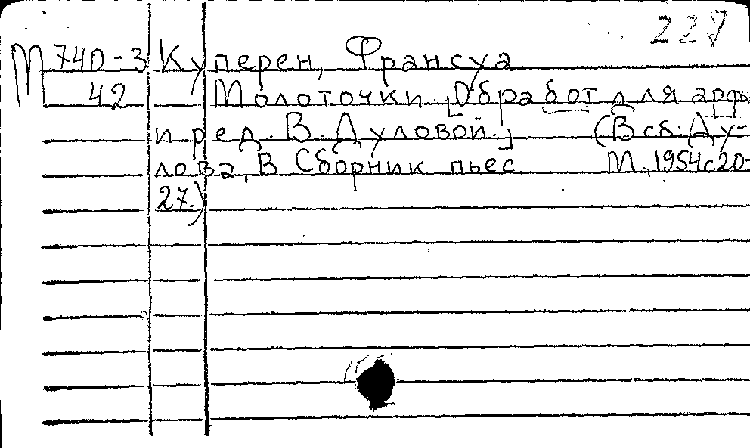 227
М 740-3 Куперен, Франсуа
42 Молоточки [Обработ для арфы
и ред. В. Дуловой.] (В сб: Ду-
лова, В Сборник пьес М., 1954 с 20-
27.)